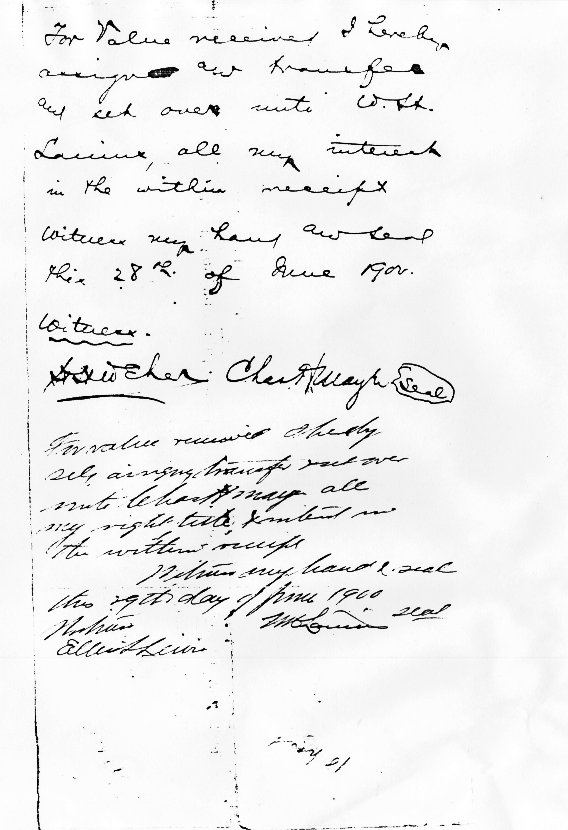 For Value received I hereby
assign and transfer
and set over unto W. H.
all my interest
in the within receipt
Witness my hand and seal
this 28th. of June 1900.
Witness.
Chas H Mayhe seal
For value received I hereby
sell, assign, transfer set over
unto Chas H May all
my right title & interest in
the within receipt
Witness my hand & seal
this 29th day of June 1900
Witness seal
Elliot Lewis